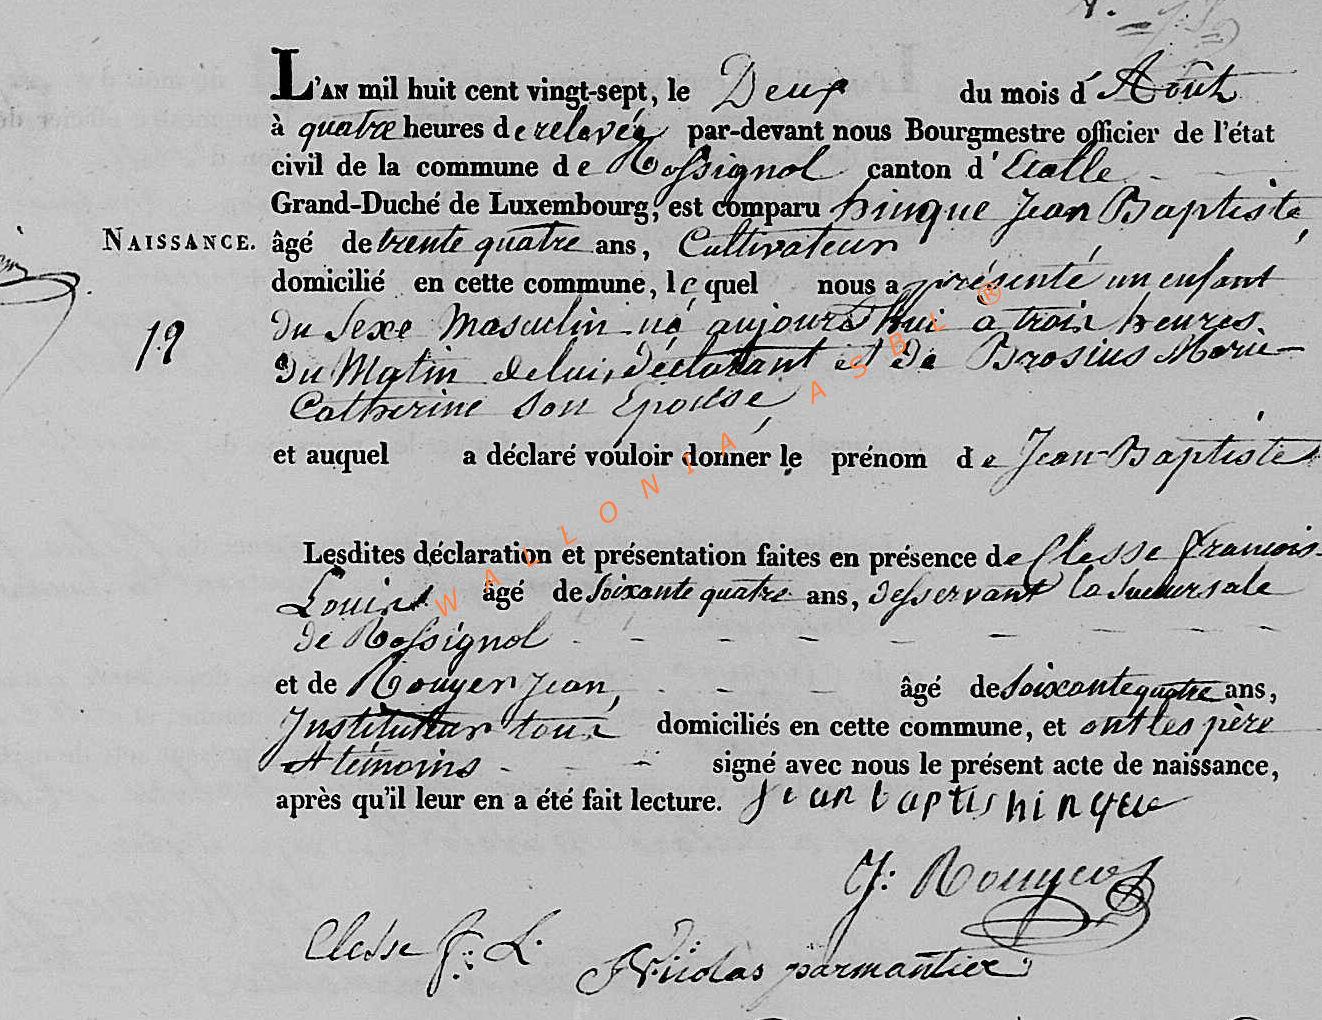 L'AN mil huit cent vingt-sept, le Deux du mois d'Août
à quatre heures de relevée par-devant nous Bourgmestre officier de l'état
civil de la commune de Rossignol canton d'Etalle
Grand-Duché de Luxembourg, est comparu hinque Jean Baptiste,
NAISSANCE. âgé de trente quatre ans, Cultivateur
domicilié en cette commune, lequel nous a présenté un enfant
19 du Sexe Masculin né aujourd'hui a trois heures
du Matin de lui, déclarant et de Brosius Marie
Catherine son Epouse,
et auquel a déclaré vouloir donner le prénom de Jean-Baptiste
Lesdites déclaration et présentation faites en présence de Clesse francois
Louis âgé de Soixante quatre ans, desservant la Succursale
de Rossignol
et de Rouyer Jean, âgé de Soixante quatre ans,
Instituteur tous domiciliés en cette commune, et ont les père
et témoins signé avec nous le présent acte de naissance,
après qu'il leur en a été fait lecture. jean baptis hinque
J: Rouyer
Clesse f: L.
Nicolas parmantier
WALLONIA ASBL ®